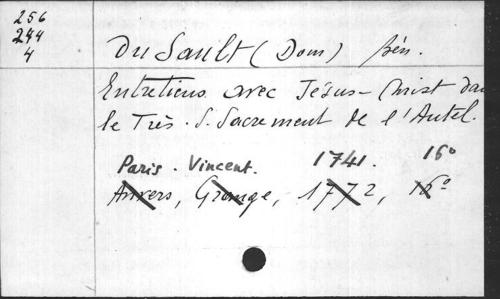 256
244
4
Du Sault (Dom) bén.
Entretiens avec Jésus-Christ dans
le Très. S. Sacrement de l'Autel.
Paris. Vincent. 1741. 16º
Anvers, Grange, 1772, 16º